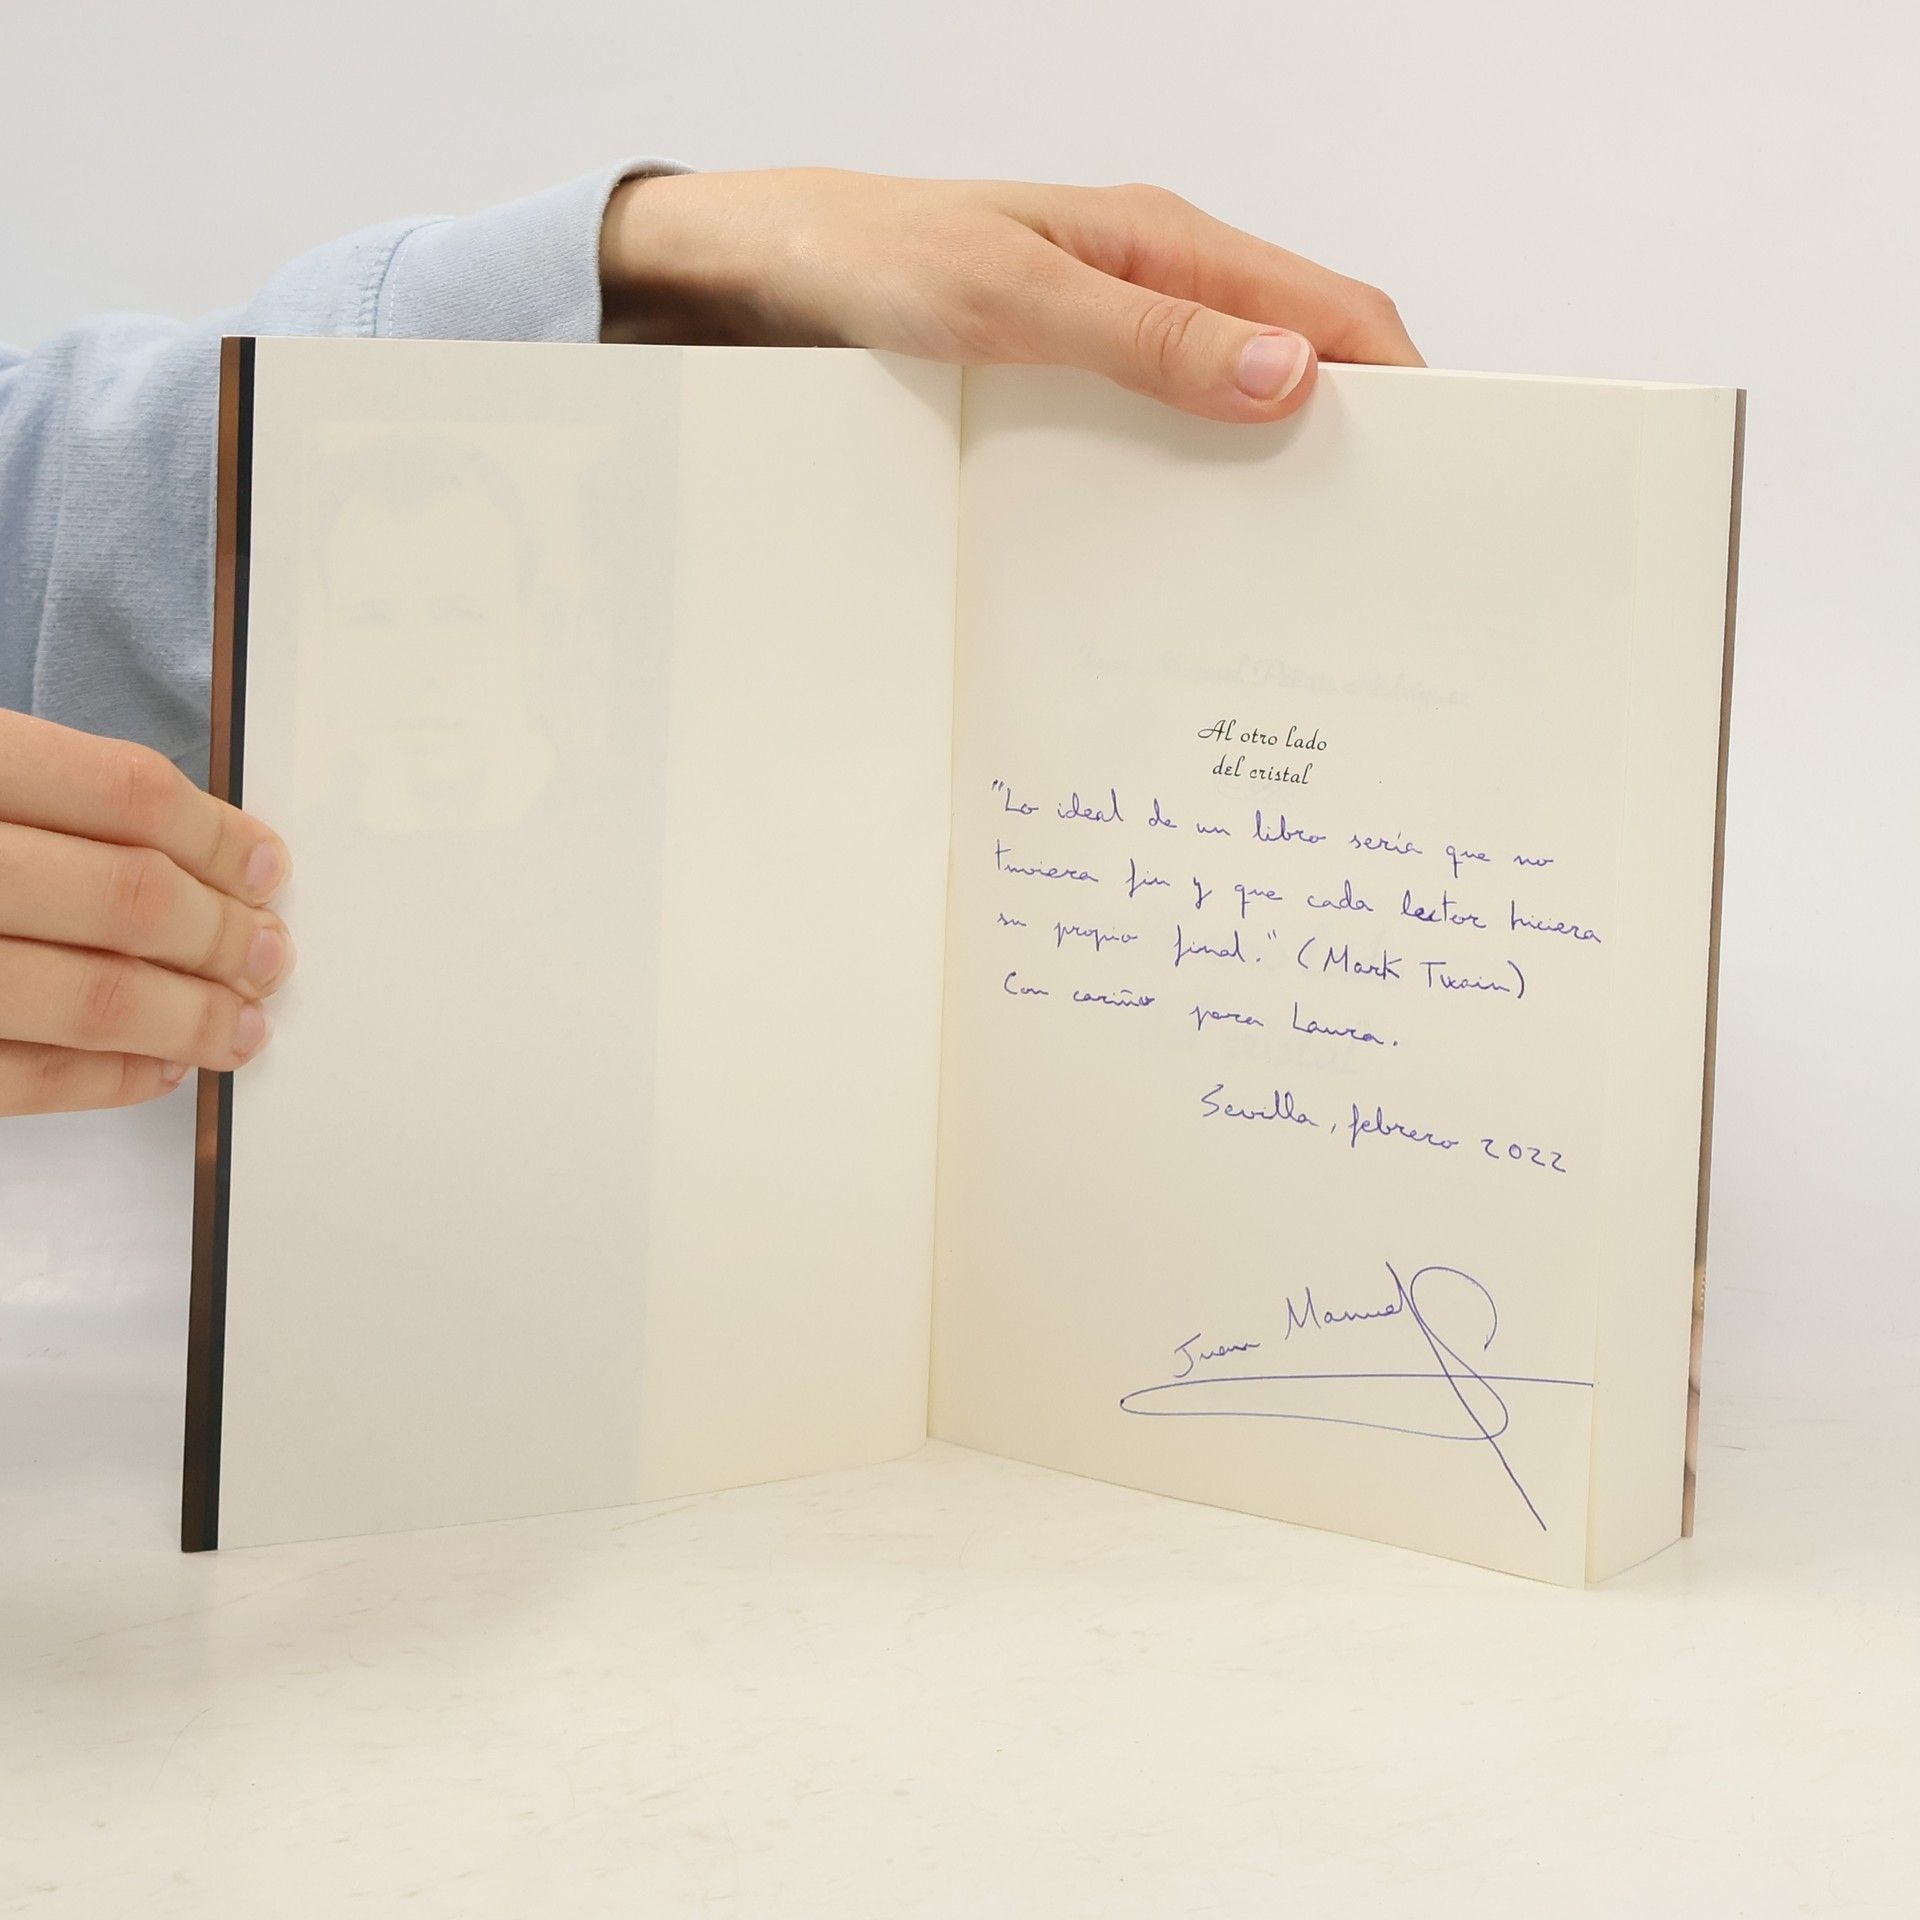 Al otro lado
del cristal
"Lo ideal de un libro sería que no
tuviera fin y que cada lector hiciera
su propio final." (Mark Twain)
Con cariño para Laura.
Sevilla, febrero 2022
Juan Manuel